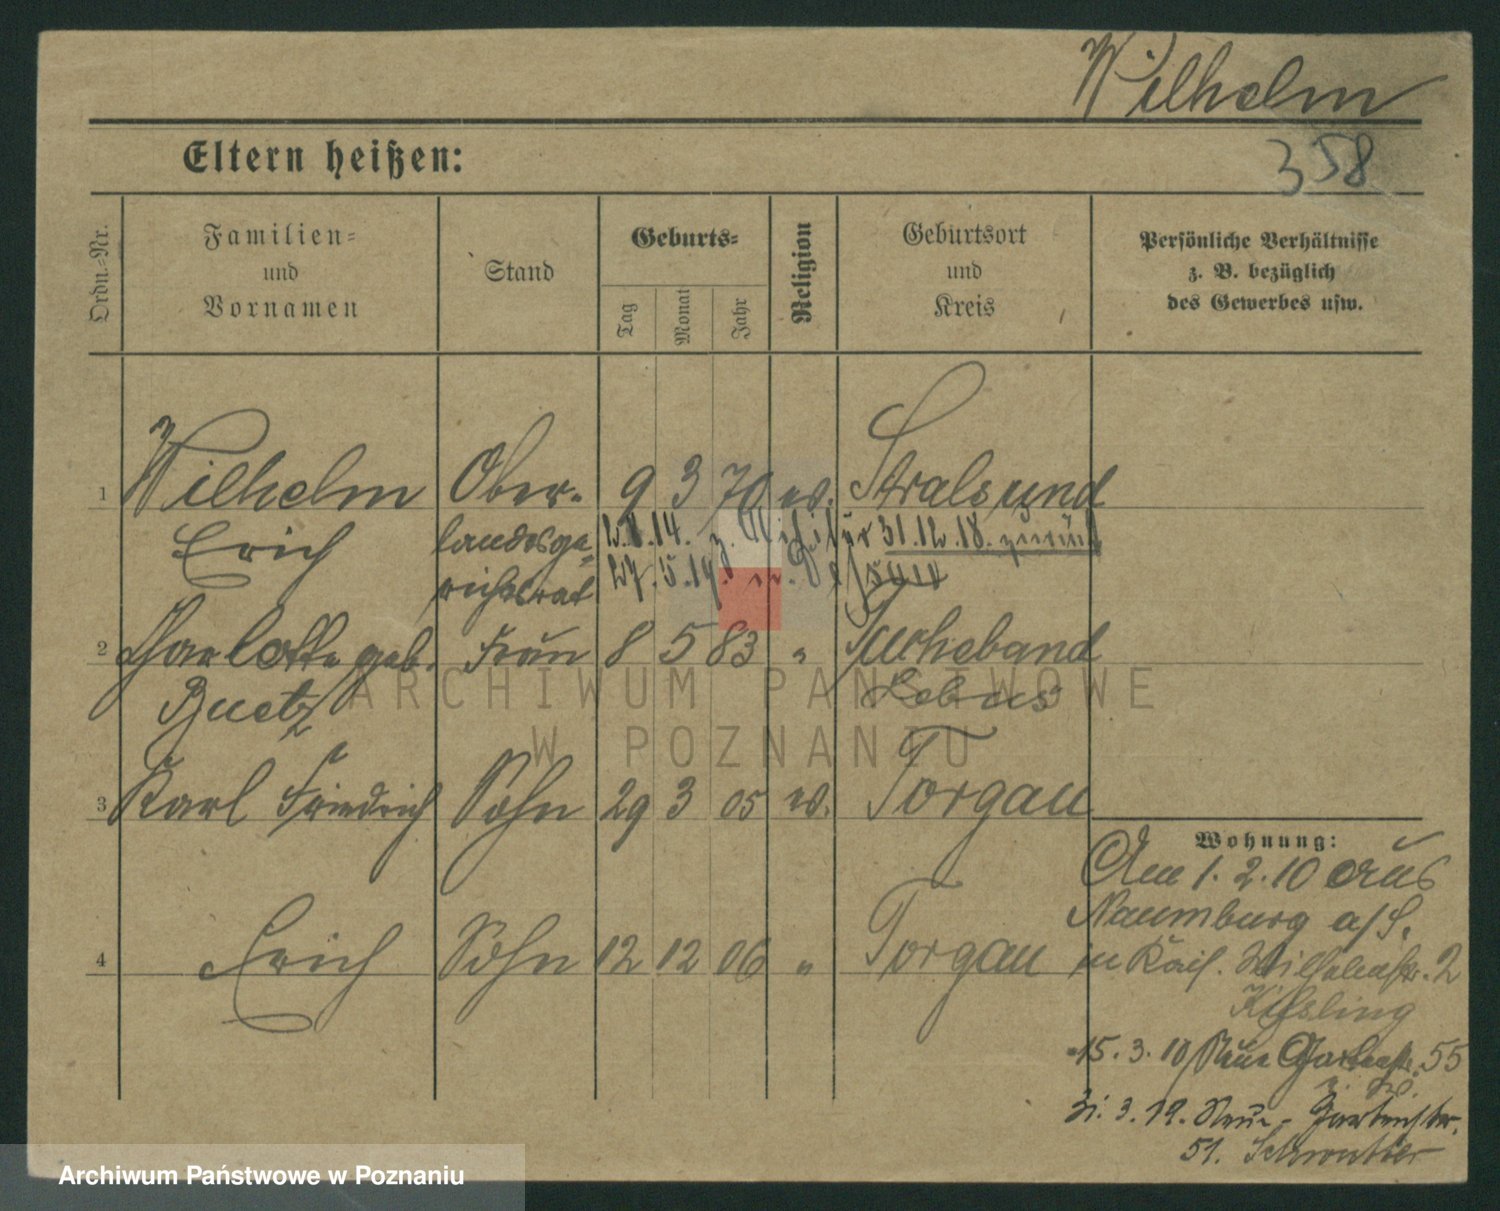 Wilhelm
Eltern heißen:
358
Ordn.-Nr.
Familien-
und
Vornamen
Stand
Geburts-
Tag
Monat
Jahr
Religion
Geburtsort
und
Kreis
Persönliche Verhältnisse
z. B. bezüglich
des Gewerbes usw.
1 Wilhelm Ober- 9 3 70 ev. Stralsund
Erich landesge-
richtsrat
14. z. Militär 31.12.18. zurück
2 Charlotte geb. Frau 8 5 83 " 
Lebus
3 Karl Friedrich Sohn 29 3 05 ev. Torgau
4 Erich Sohn 12 12 06 " Torgau
Wohnung:
Am 1.2.10 aus
Naumburg a/S.
in Kais. Wilhelmstr. 2
15.3.10 Neue Gartenstr. 55
31.3.12. Neue-Gartenstr.
51.
ARCHIWUM PAŃSTWOWE
W POZNANIU
Archiwum Państwowe w Poznaniu